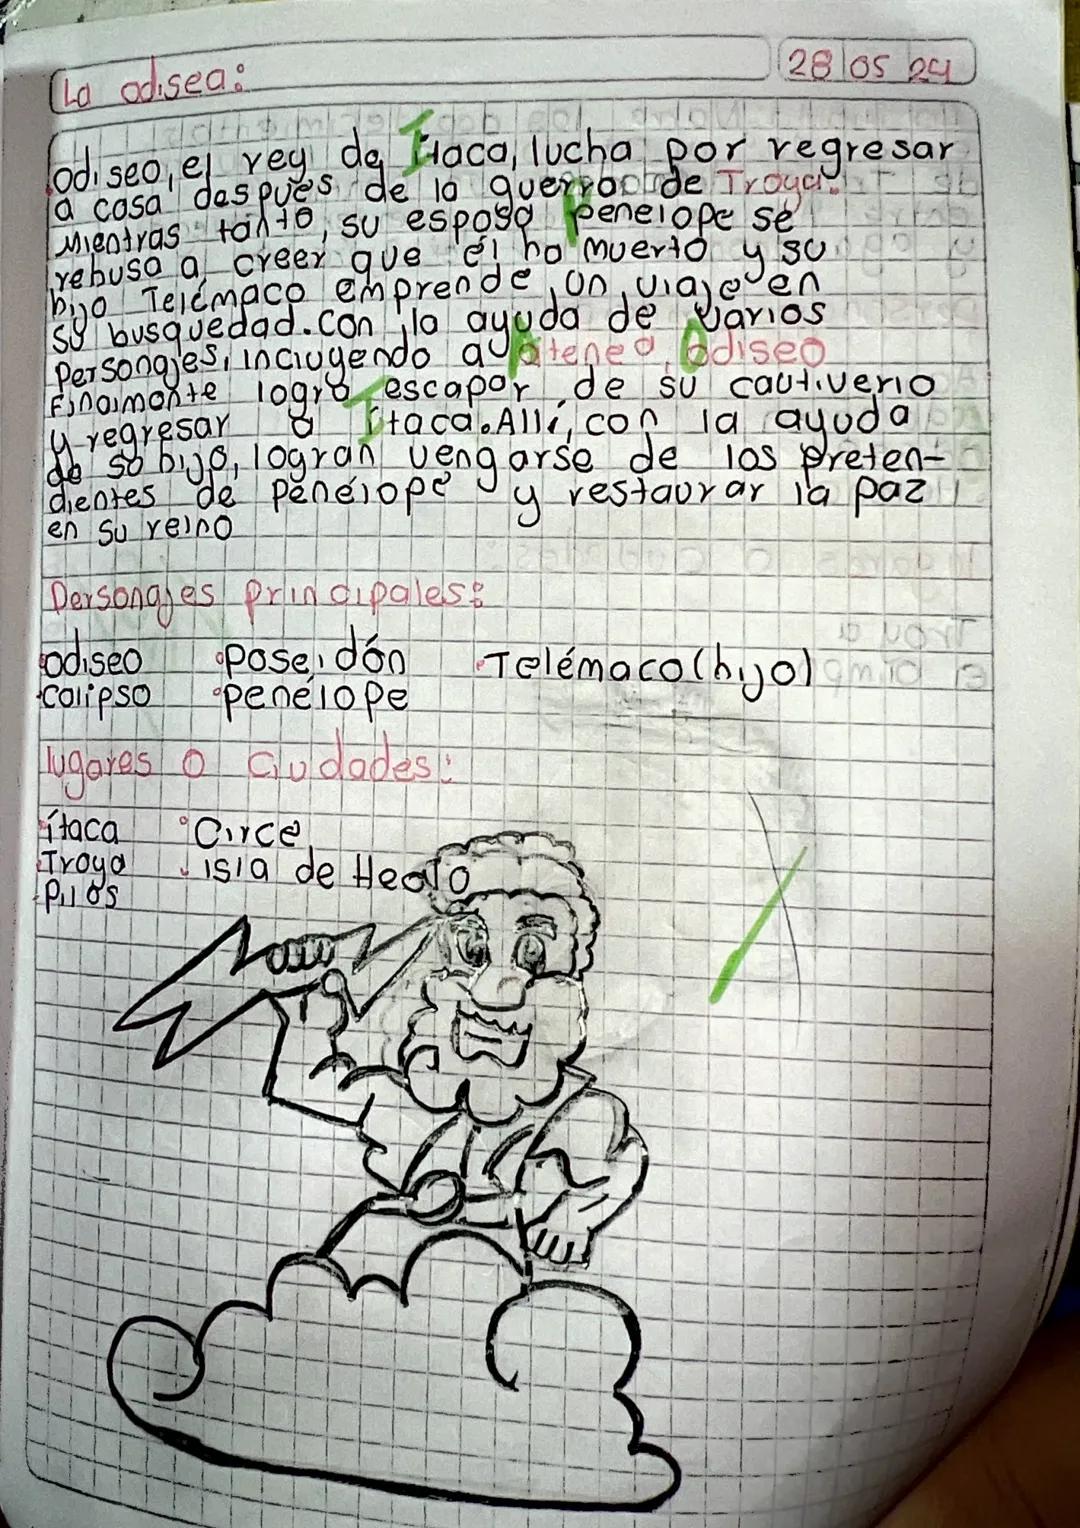 La odisea:
28 05 24
odiseo, el rey de Ítaca, lucha por regresar
a casa despues de la guerra de Troya.
Mientras tanto, su esposa Penelope se
rebusa a creer que él ha muerto y su
hijo Telémaco emprende un viaje en
su busquedad. con la ayuda de varios
personajes, incluyendo a Atenea, Odiseo
Finalmente logra escapar de su cautiverio
y regresar a Ítaca. Allí, con la ayuda
de so hijo, logran vengarse de los preten-
dientes de penélope y restaurar la paz
en su reino
Personajes principales:
odiseo •poseidón •Telémaco (hijo)
•calipso •penélope
lugares o ciudades:
•ítaca •Circe
•Troya •isla de Heolo
•Pilos